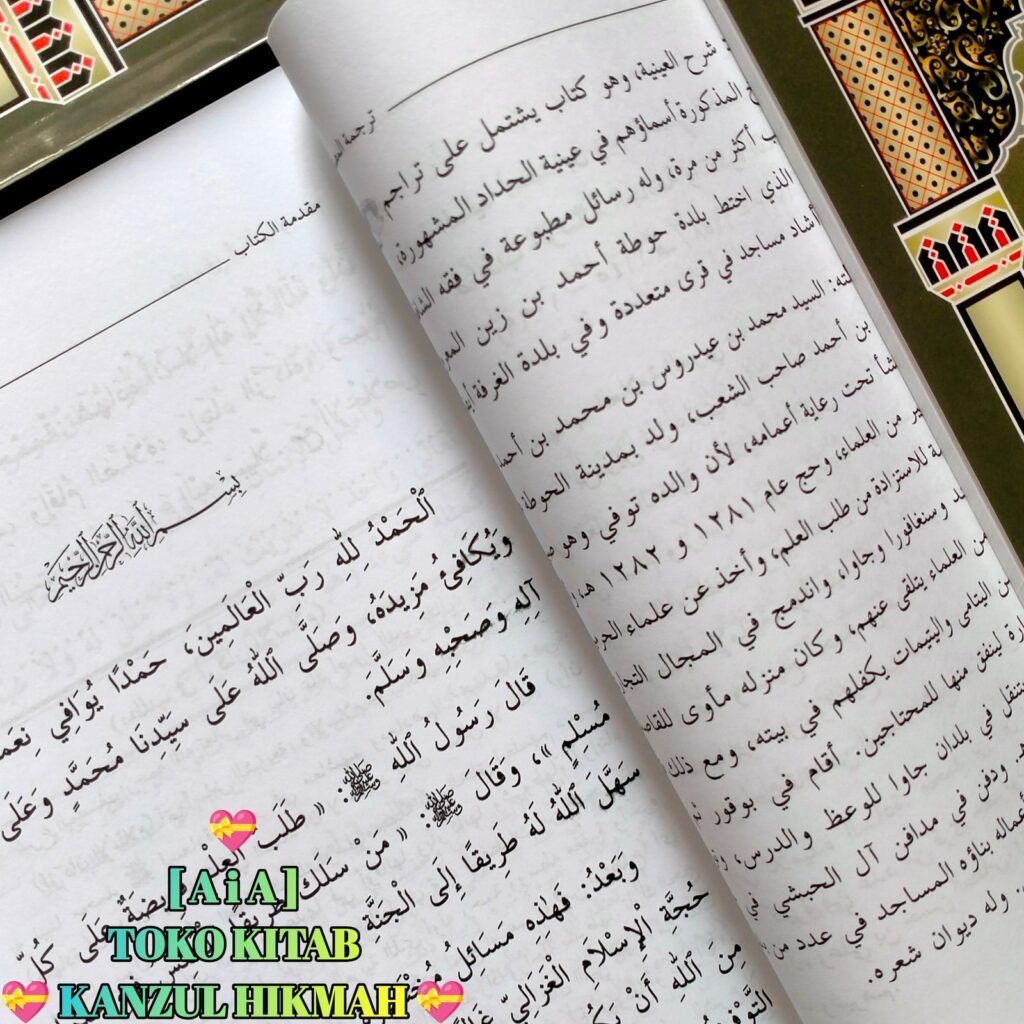 ترجمة
شرح العينية، وهو كتاب يشتمل على تراجم
المذكورة أسماؤهم في عينية الحداد المشهورة،
أكثر من مرة، وله رسائل مطبوعة في فقه
الذي اختط بلدة حوطة أحمد بن زين
مساجد في قرى متعددة وفي بلدة الغرفة
السيد محمد بن عيدروس بن محمد بن
بن أحمد صاحب الشعب، ولد بمدينة الحوطة
تحت رعاية أعمامه، لأن والده توفي وهو
من العلماء، وحج عام ١٢٨١ و ١٢٨٢ هـ،
للاستزادة من طلب العلم، وأخذ عن علماء
وسنغافورا وجاوا، واندمج في المجال
من العلماء يتلقى عنهم، وكان منزله مأوى
اليتامى واليتيمات يكفلهم في بيته، ومع ذلك
لينفق منها للمحتاجين. أقام في بوقور
في بلدان جاوا للوعظ والدرس،
ودفن في مدافن آل الحبشي في
بناؤه المساجد في عدد من
وله ديوان شعره.
مقدمة الكتاب
بسم الله الرحمن الرحيم
ٱلْحَمْدُ لِلَّهِ رَبِّ ٱلْعَالَمِينَ، حَمْدًا يُوَافِي
وَيُكَافِئُ مَزِيدَهُ، وَصَلَّى ٱللهُ عَلَى سَيِّدِنَا مُحَمَّدٍ وَعَلَى
آلِهِ وَصَحْبِهِ وَسَلَّمَ.
قَالَ رَسُولُ ٱللهِ ﷺ: « طَلَبُ ٱلْعِلْمِ فَرِيضَةٌ عَلَى كُلِّ
مُسْلِمٍ »، وَقَالَ ﷺ: « مَنْ سَلَكَ طَرِيقًا
سَهَّلَ ٱللهُ لَهُ طَرِيقًا إِلَى ٱلْجَنَّةِ
وَبَعْدُ: فَهٰذِهِ مَسَائِلُ
حُجَّةُ ٱلْإِسْلَامِ ٱلْغَزَالِيُّ
مِنَ ٱللهِ أَنْ
💝
[AiA]
TOKO KITAB
💝 KANZUL HIKMAH 💝